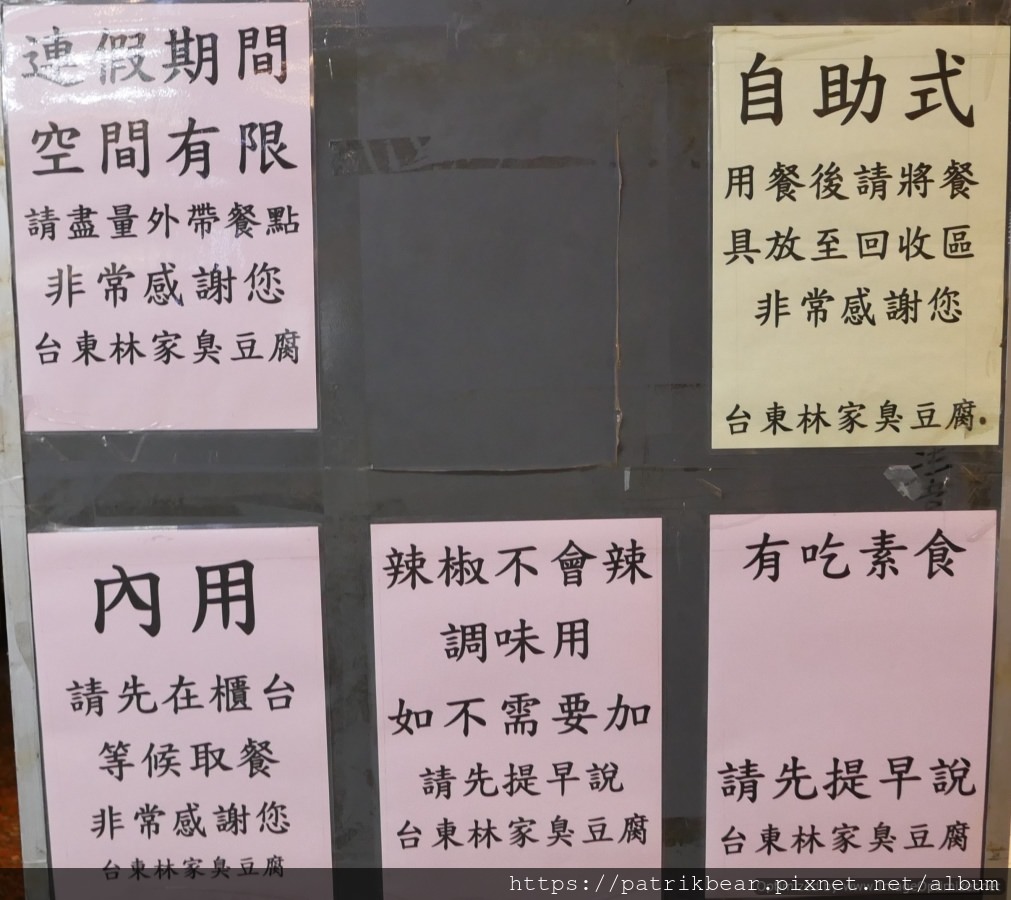 連假期間
空間有限
請盡量外帶餐點
非常感謝您
台東林家臭豆腐
自助式
用餐後請將餐
具放至回收區
非常感謝您
台東林家臭豆腐.
內用
請先在櫃台
等候取餐
非常感謝您
台東林家臭豆腐
辣椒不會辣
調味用
如不需要加
請先提早說
台東林家臭豆腐
有吃素食
請先提早說
台東林家臭豆腐
https://patrikbear.pixnet.net/album